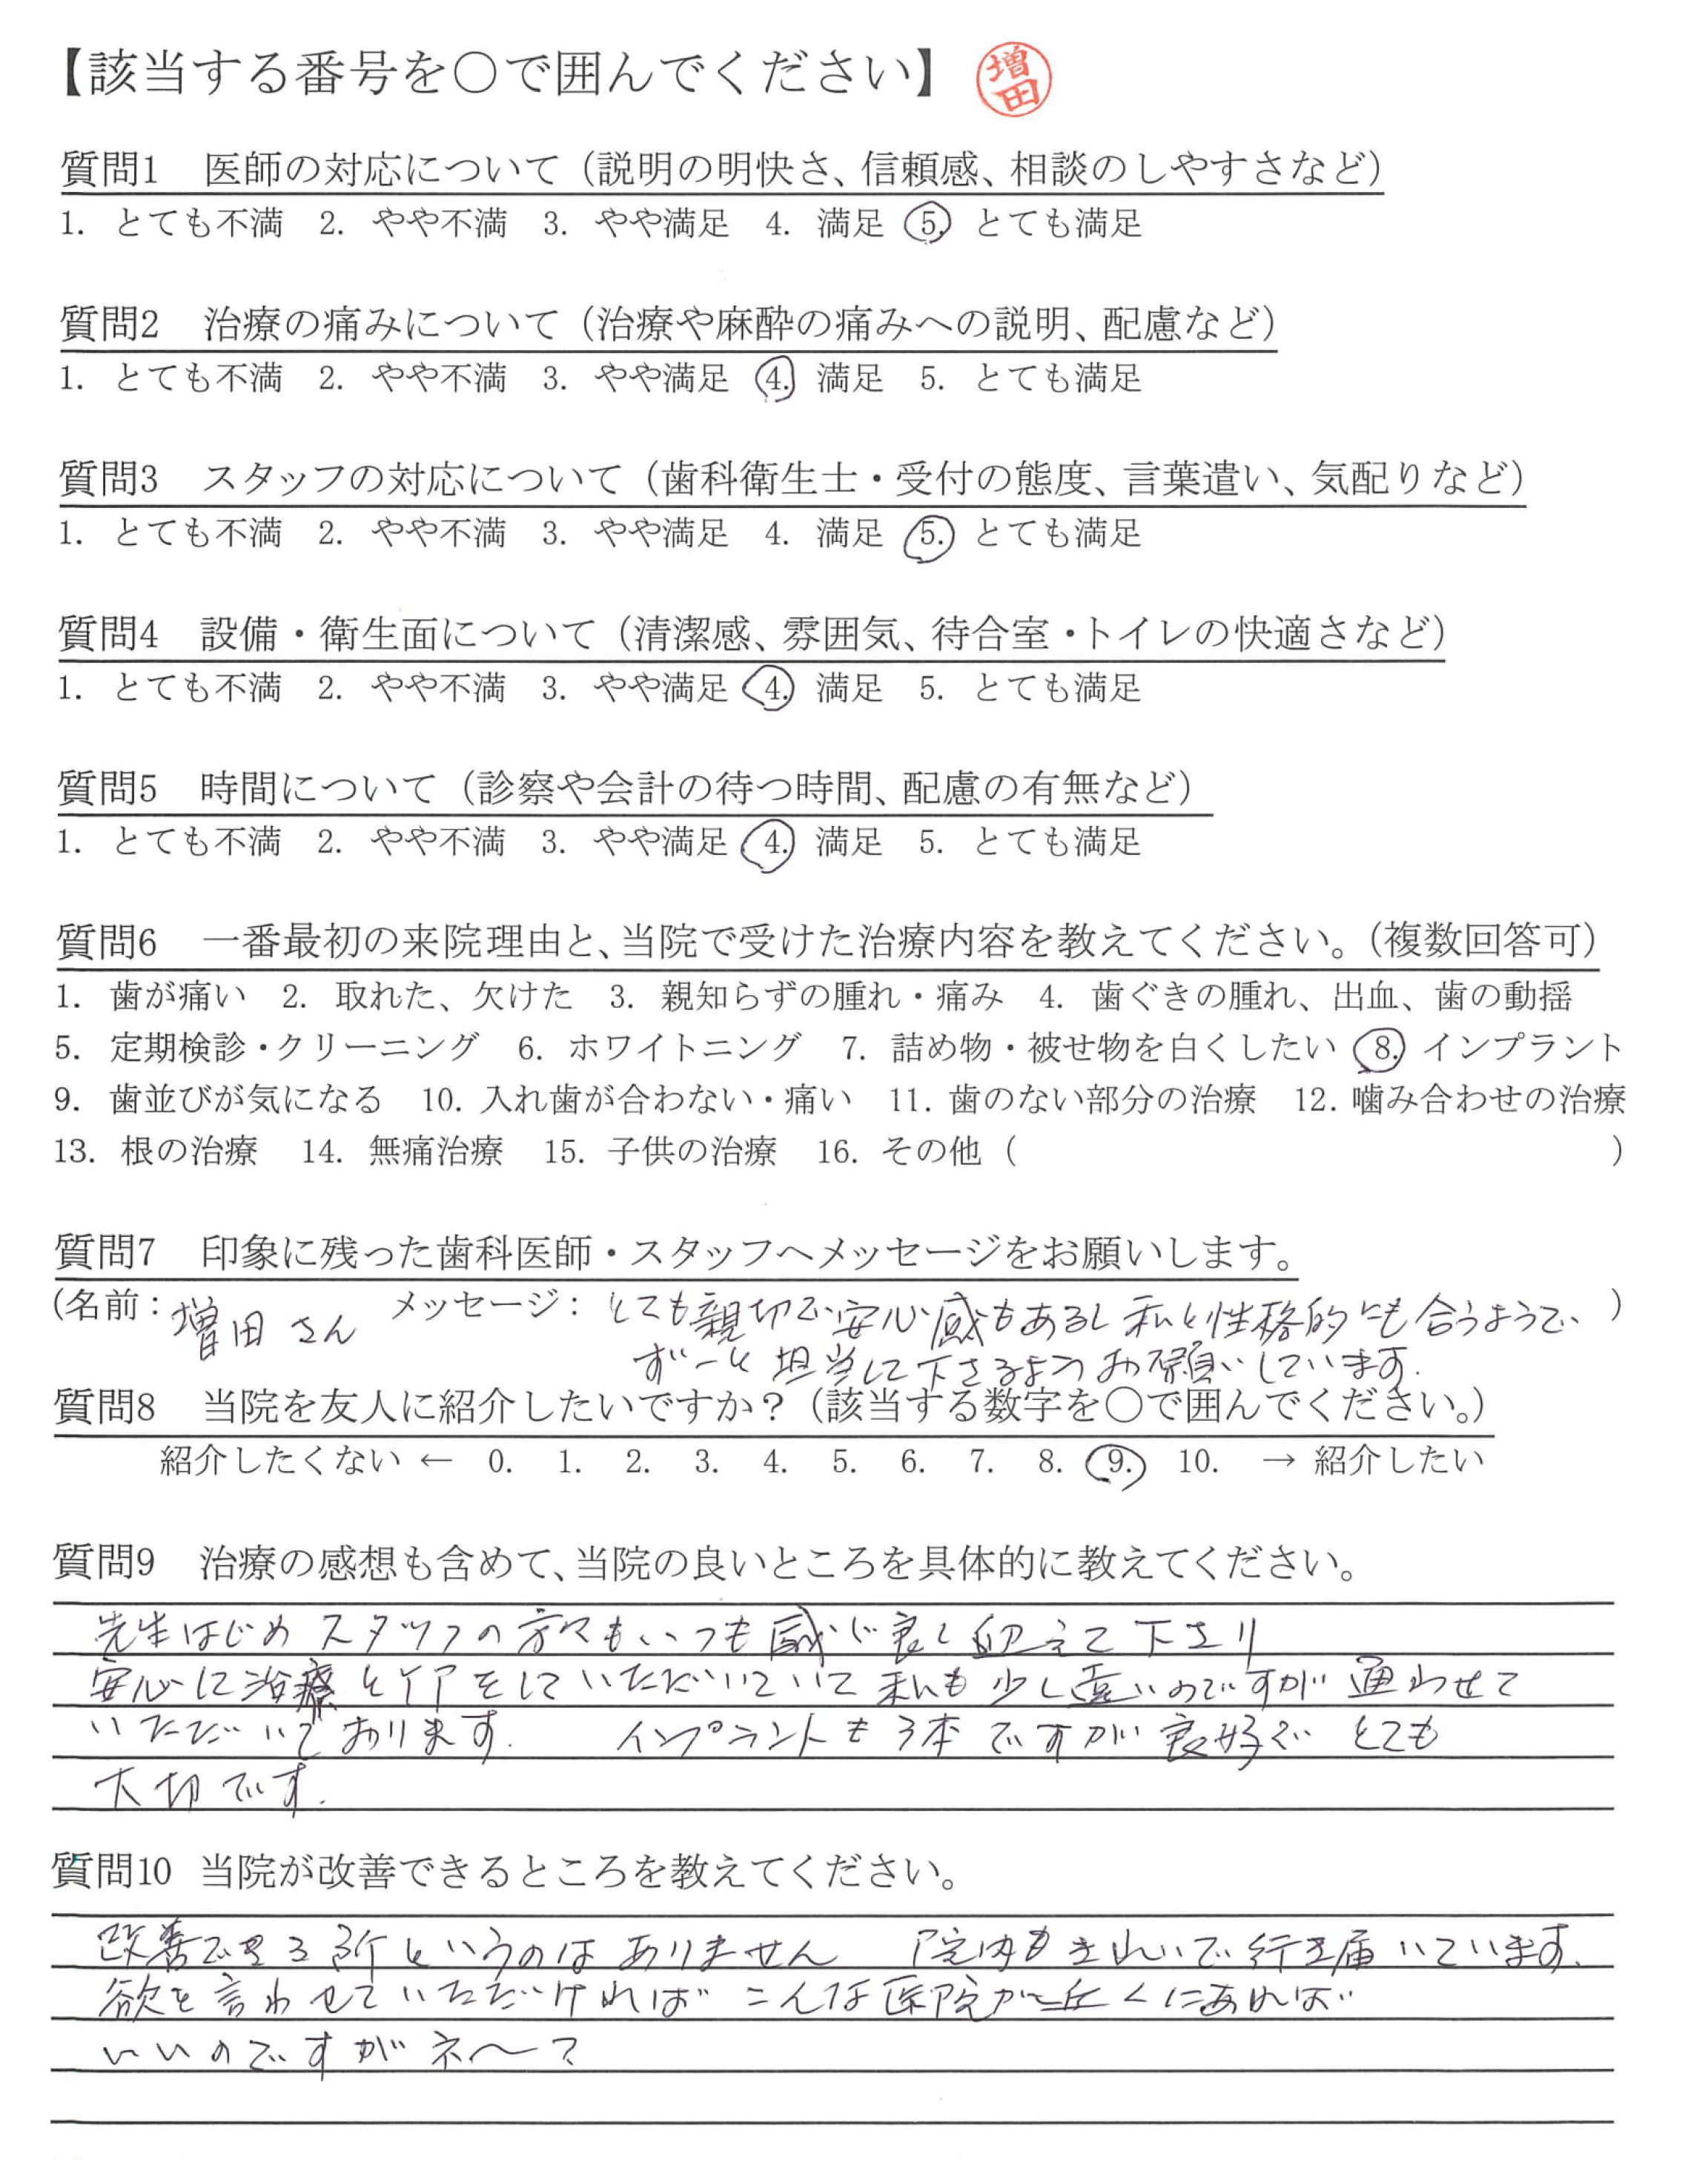 【該当する番号を○で囲んでください】 増田
質問1 医師の対応について（説明の明快さ、信頼感、相談のしやすさなど）
1. とても不満 2. やや不満 3. やや満足 4. 満足 5. とても満足
質問2 治療の痛みについて（治療や麻酔の痛みへの説明、配慮など）
1. とても不満 2. やや不満 3. やや満足 4. 満足 5. とても満足
質問3 スタッフの対応について（歯科衛生士・受付の態度、言葉遣い、気配りなど）
1. とても不満 2. やや不満 3. やや満足 4. 満足 5. とても満足
質問4 設備・衛生面について（清潔感、雰囲気、待合室・トイレの快適さなど）
1. とても不満 2. やや不満 3. やや満足 4. 満足 5. とても満足
質問5 時間について（診察や会計の待つ時間、配慮の有無など）
1. とても不満 2. やや不満 3. やや満足 4. 満足 5. とても満足
質問6 一番最初の来院理由と、当院で受けた治療内容を教えてください。（複数回答可）
1. 歯が痛い 2. 取れた、欠けた 3. 親知らずの腫れ・痛み 4. 歯ぐきの腫れ、出血、歯の動揺
5. 定期検診・クリーニング 6. ホワイトニング 7. 詰め物・被せ物を白くしたい 8. インプラント
9. 歯並びが気になる 10. 入れ歯が合わない・痛い 11. 歯のない部分の治療 12. 噛み合わせの治療
13. 根の治療 14. 無痛治療 15. 子供の治療 16. その他（ ）
質問7 印象に残った歯科医師・スタッフへメッセージをお願いします。
（名前：増田さん メッセージ：とても親切で安心感もあるし私と性格的にも合うようで、）
ずーと担当して下さるようお願いしています.
質問8 当院を友人に紹介したいですか？（該当する数字を○で囲んでください。）
紹介したくない ← 0. 1. 2. 3. 4. 5. 6. 7. 8. 9. 10. → 紹介したい
質問9 治療の感想も含めて、当院の良いところを具体的に教えてください。
先生はじめスタッフの方々もいつも感じ良く迎えて下さり
安心に治療とケアをしていただいていて私も少し遠いのですが通わせて
いただいております. インプラントも3本ですが良好で とても
大切です.
質問10 当院が改善できるところを教えてください。
改善できる所というのはありません 院内もきれいで行き届いています.
欲を言わせていただければ こんな医院が近くにあれば
いいのですがネ〜？